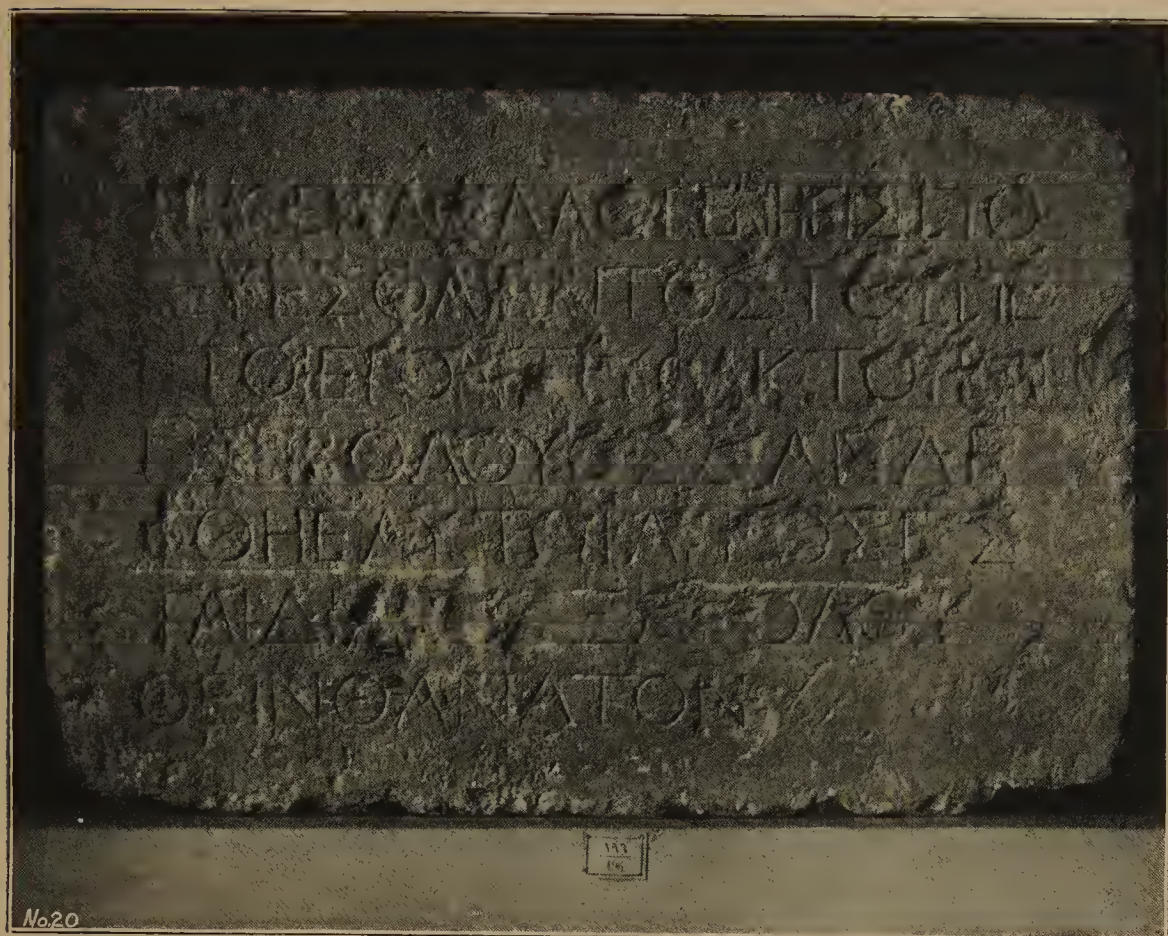 ΜΗΘΕΝΑΑΛΛΟΓΕΝΗΕΙΣΠΟ
ΡΕΥΕΣΘΑΙΕΝΤΟΣΤΟΥΠΕ
ΡΙΤΟΙΕΡΟΝΤΡΥΦΑΚΤΟΥΚΑΙ
ΠΕΡΙΒΟΛΟΥΟΣΔΑΝΛΗ
ΦΘΗΕΑΥΤΩΙΑΙΤΙΟΣΕΣ
ΤΑΙΔΙΑΤΟΕΞΑΚΟΛΟΥ
ΘΕΙΝΘΑΝΑΤΟΝ
No.20